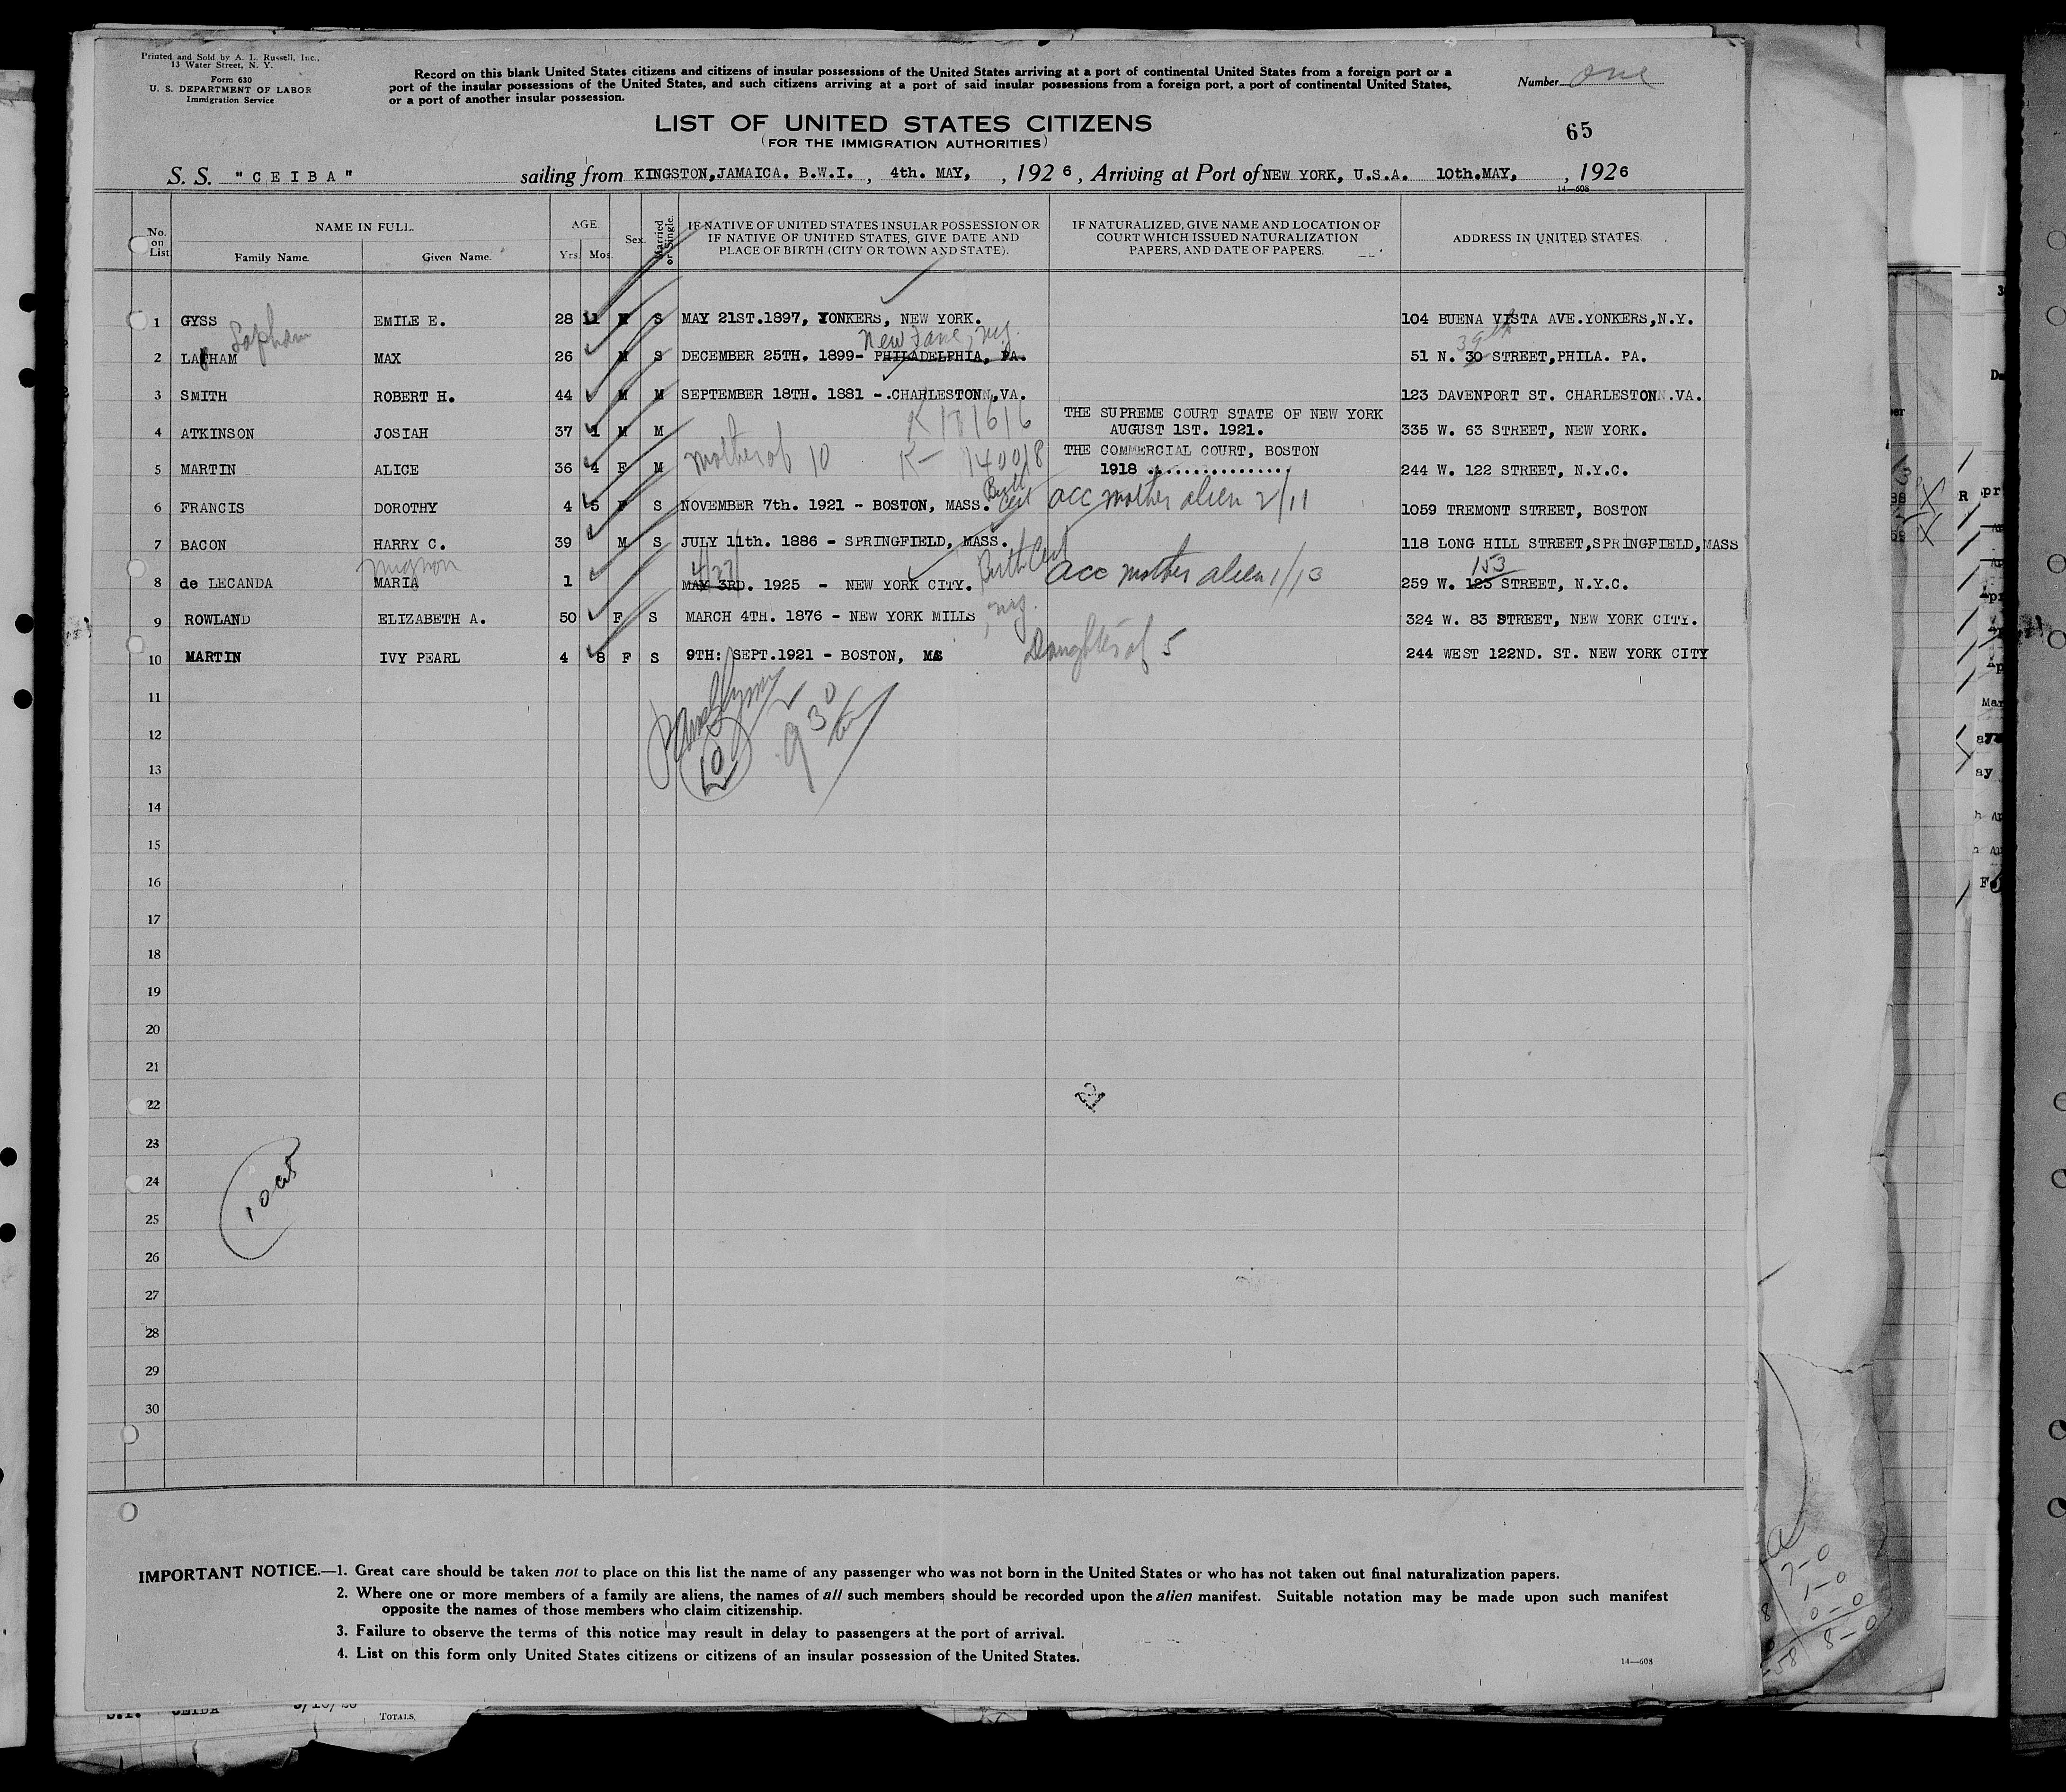 Printed and Sold by A. L. Russell, Inc.,
13 Water Street, N. Y.
Form 630
U. S. DEPARTMENT OF LABOR
Immigration Service
Record on this blank United States citizens and citizens of insular possessions of the United States arriving at a port of continental United States from a foreign port or a
port of the insular possessions of the United States, and such citizens arriving at a port of said insular possessions from a foreign port, a port of continental United States,
or a port of another insular possession.
Number One
LIST OF UNITED STATES CITIZENS
(FOR THE IMMIGRATION AUTHORITIES)
65
S. S. "CEIBA" sailing from KINGSTON, JAMAICA. B.W.I. , 4th. MAY, , 1926, Arriving at Port of NEW YORK, U.S.A. 10th.MAY, , 1926
14—608
No. on List NAME IN FULL. Family Name. Given Name. AGE Yrs. Mos. Sex. Married or Single. IF NATIVE OF UNITED STATES INSULAR POSSESSION OR IF NATIVE OF UNITED STATES, GIVE DATE AND PLACE OF BIRTH (CITY OR TOWN AND STATE). IF NATURALIZED, GIVE NAME AND LOCATION OF COURT WHICH ISSUED NATURALIZATION PAPERS, AND DATE OF PAPERS. ADDRESS IN UNITED STATES.
1 GYSS EMILE E. 28 11 M S MAY 21ST.1897, YONKERS, NEW YORK. 104 BUENA VISTA AVE.YONKERS,N.Y.
Lapham New Fane, N.Y. 39th
2 LATHAM MAX 26 M S DECEMBER 25TH. 1899- PHILADELPHIA, PA. 51 N. 30 STREET,PHILA. PA.
3 SMITH ROBERT H. 44 M M SEPTEMBER 18TH. 1881 - CHARLESTON,VA. 123 DAVENPORT ST. CHARLESTON.VA.
4 ATKINSON JOSIAH 37 1 M M THE SUPREME COURT STATE OF NEW YORK AUGUST 1ST. 1921. 335 W. 63 STREET, NEW YORK.
5 MARTIN ALICE 36 4 F M mother of 10 K- 140018 THE COMMERCIAL COURT, BOSTON 1918 ............... 244 W. 122 STREET, N.Y.C.
6 FRANCIS DOROTHY 4 5 F S NOVEMBER 7th. 1921 - BOSTON, MASS. Birth Cert acc mother alien 2/11 1059 TREMONT STREET, BOSTON
7 BACON HARRY C. 39 M S JULY 11th. 1886 - SPRINGFIELD, MASS. 118 LONG HILL STREET,SPRINGFIELD,MASS
Mignon 4/27 153
8 de LECANDA MARIA 1 MAY 3RD. 1925 - NEW YORK CITY. Birth Cert acc mother alien 1/13 259 W. 123 STREET, N.Y.C.
9 ROWLAND ELIZABETH A. 50 F S MARCH 4TH. 1876 - NEW YORK MILLS, N.Y. 324 W. 83 STREET, NEW YORK CITY.
10 MARTIN IVY PEARL 4 8 F S 9TH: SEPT.1921 - BOSTON, MAS Daughter of 5 244 WEST 122ND. ST. NEW YORK CITY
11
12
10 930
13
14
15
16
17
18
19
20
21
22
23
24
25
26
27
28
29
30
IMPORTANT NOTICE.—1. Great care should be taken not to place on this list the name of any passenger who was not born in the United States or who has not taken out final naturalization papers.
2. Where one or more members of a family are aliens, the names of all such members should be recorded upon the alien manifest. Suitable notation may be made upon such manifest
opposite the names of those members who claim citizenship.
3. Failure to observe the terms of this notice may result in delay to passengers at the port of arrival.
4. List on this form only United States citizens or citizens of an insular possession of the United States.
14—608
7-0
1-0
0-0
8-0
TOTALS,